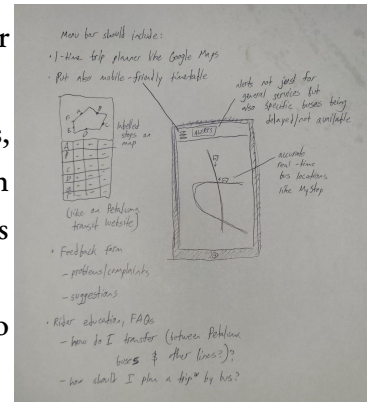 r
s,
n
s
o
Menu bar should include:
• 1-time trip planner like Google Maps
• But also mobile-friendly timetable
labelled
stops on
map
(like on Petaluma
transit website)
ALERTS
alerts not just for
general services but
also specific buses being
delayed/not available
accurate
real-time
bus locations
like MyStop
• Feedback form
- problems/complaints
- suggestions
• Rider education, FAQs
- how do I transfer (between Petaluma
buses & other lines?)?
- how should I plan a trip* by bus?